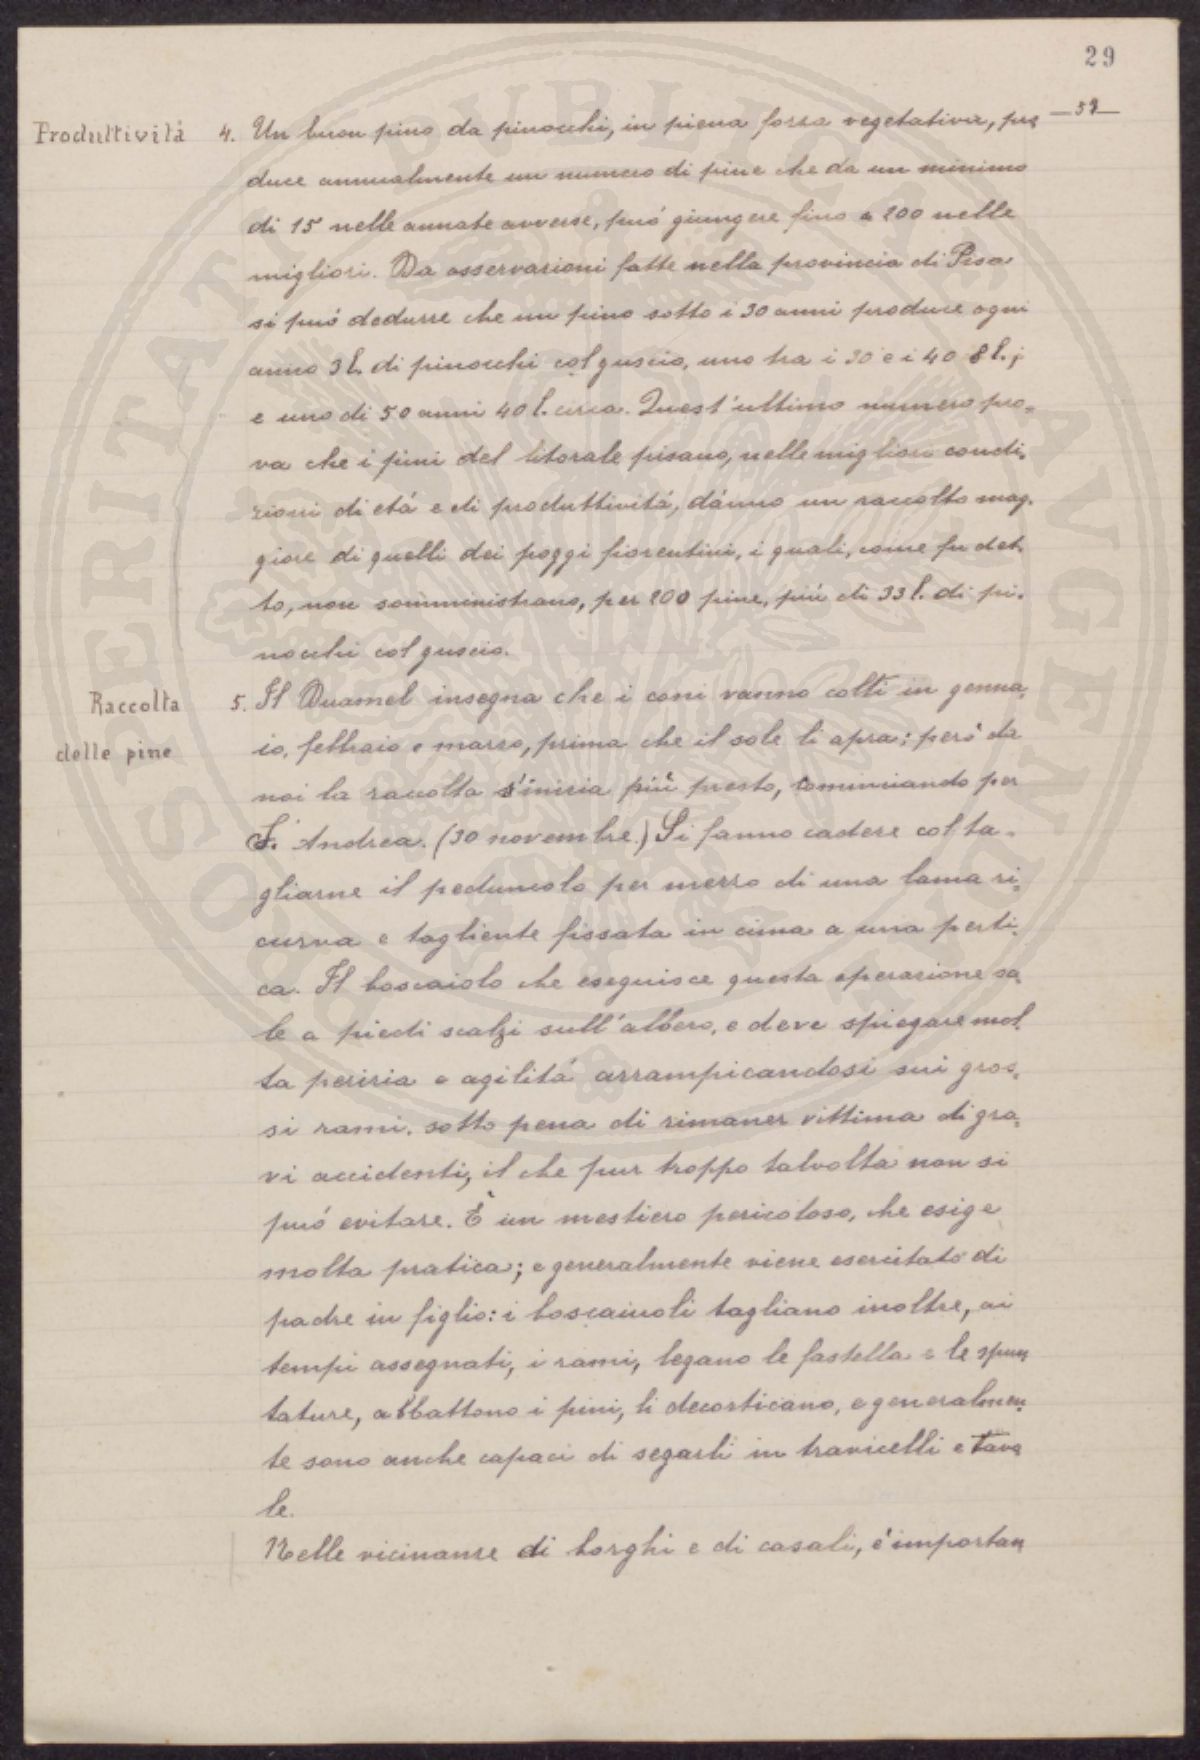 29
— 57 —
Produttività 4. Un buon pino da pinocchi, in piena forza vegetativa, pro
duce annualmente un numero di pine che da un minimo
di 15 nelle annate avverse, può giungere fino a 200 nelle
migliori. Da osservazioni fatte nella provincia di Pisa
si può dedurre che un pino sotto i 30 anni produce ogni
anno 3 l. di pinocchi col guscio, uno tra i 30 e i 40 8 l.;
e uno di 50 anni 40 l. circa. Quest'ultimo numero pro=
va che i pini del litorale pisano, nelle migliori condi=
zioni di età e di produttività, dànno un raccolto mag=
giore di quelli dei poggi fiorentini, i quali, come fu det=
to, non somministrano, per 200 pine, più di 33 l. di pi=
nocchi col guscio.
Raccolta 5. Il Duamel insegna che i coni vanno colti in genna=
delle pine io, febbraio e marzo, prima che il sole li apra; però da
noi la raccolta s'inizia più presto, cominciando per
S. Andrea. (30 novembre.) Si fanno cadere col ta=
gliarne il peduncolo per mezzo di una lama ri=
curva e tagliente fissata in cima a una perti=
ca. Il boscaiolo che eseguisce questa operazione sa=
le a piedi scalzi sull'albero, e deve spiegare mol=
ta perizia e agilità arrampicandosi sui gros=
si rami, sotto pena di rimaner vittima di gra=
vi accidenti, il che pur troppo talvolta non si
può evitare. È un mestiero pericoloso, che esige
molta pratica; e generalmente viene esercitato di
padre in figlio: i boscaiuoli tagliano inoltre, ai
tempi assegnati, i rami, legano le fastella e le spun
tature, abbattono i pini, li decorticano, e generalmen=
te sono anche capaci di segarli in travicelli e tavo
le.
Nelle vicinanze di borghi e di casali, è importan